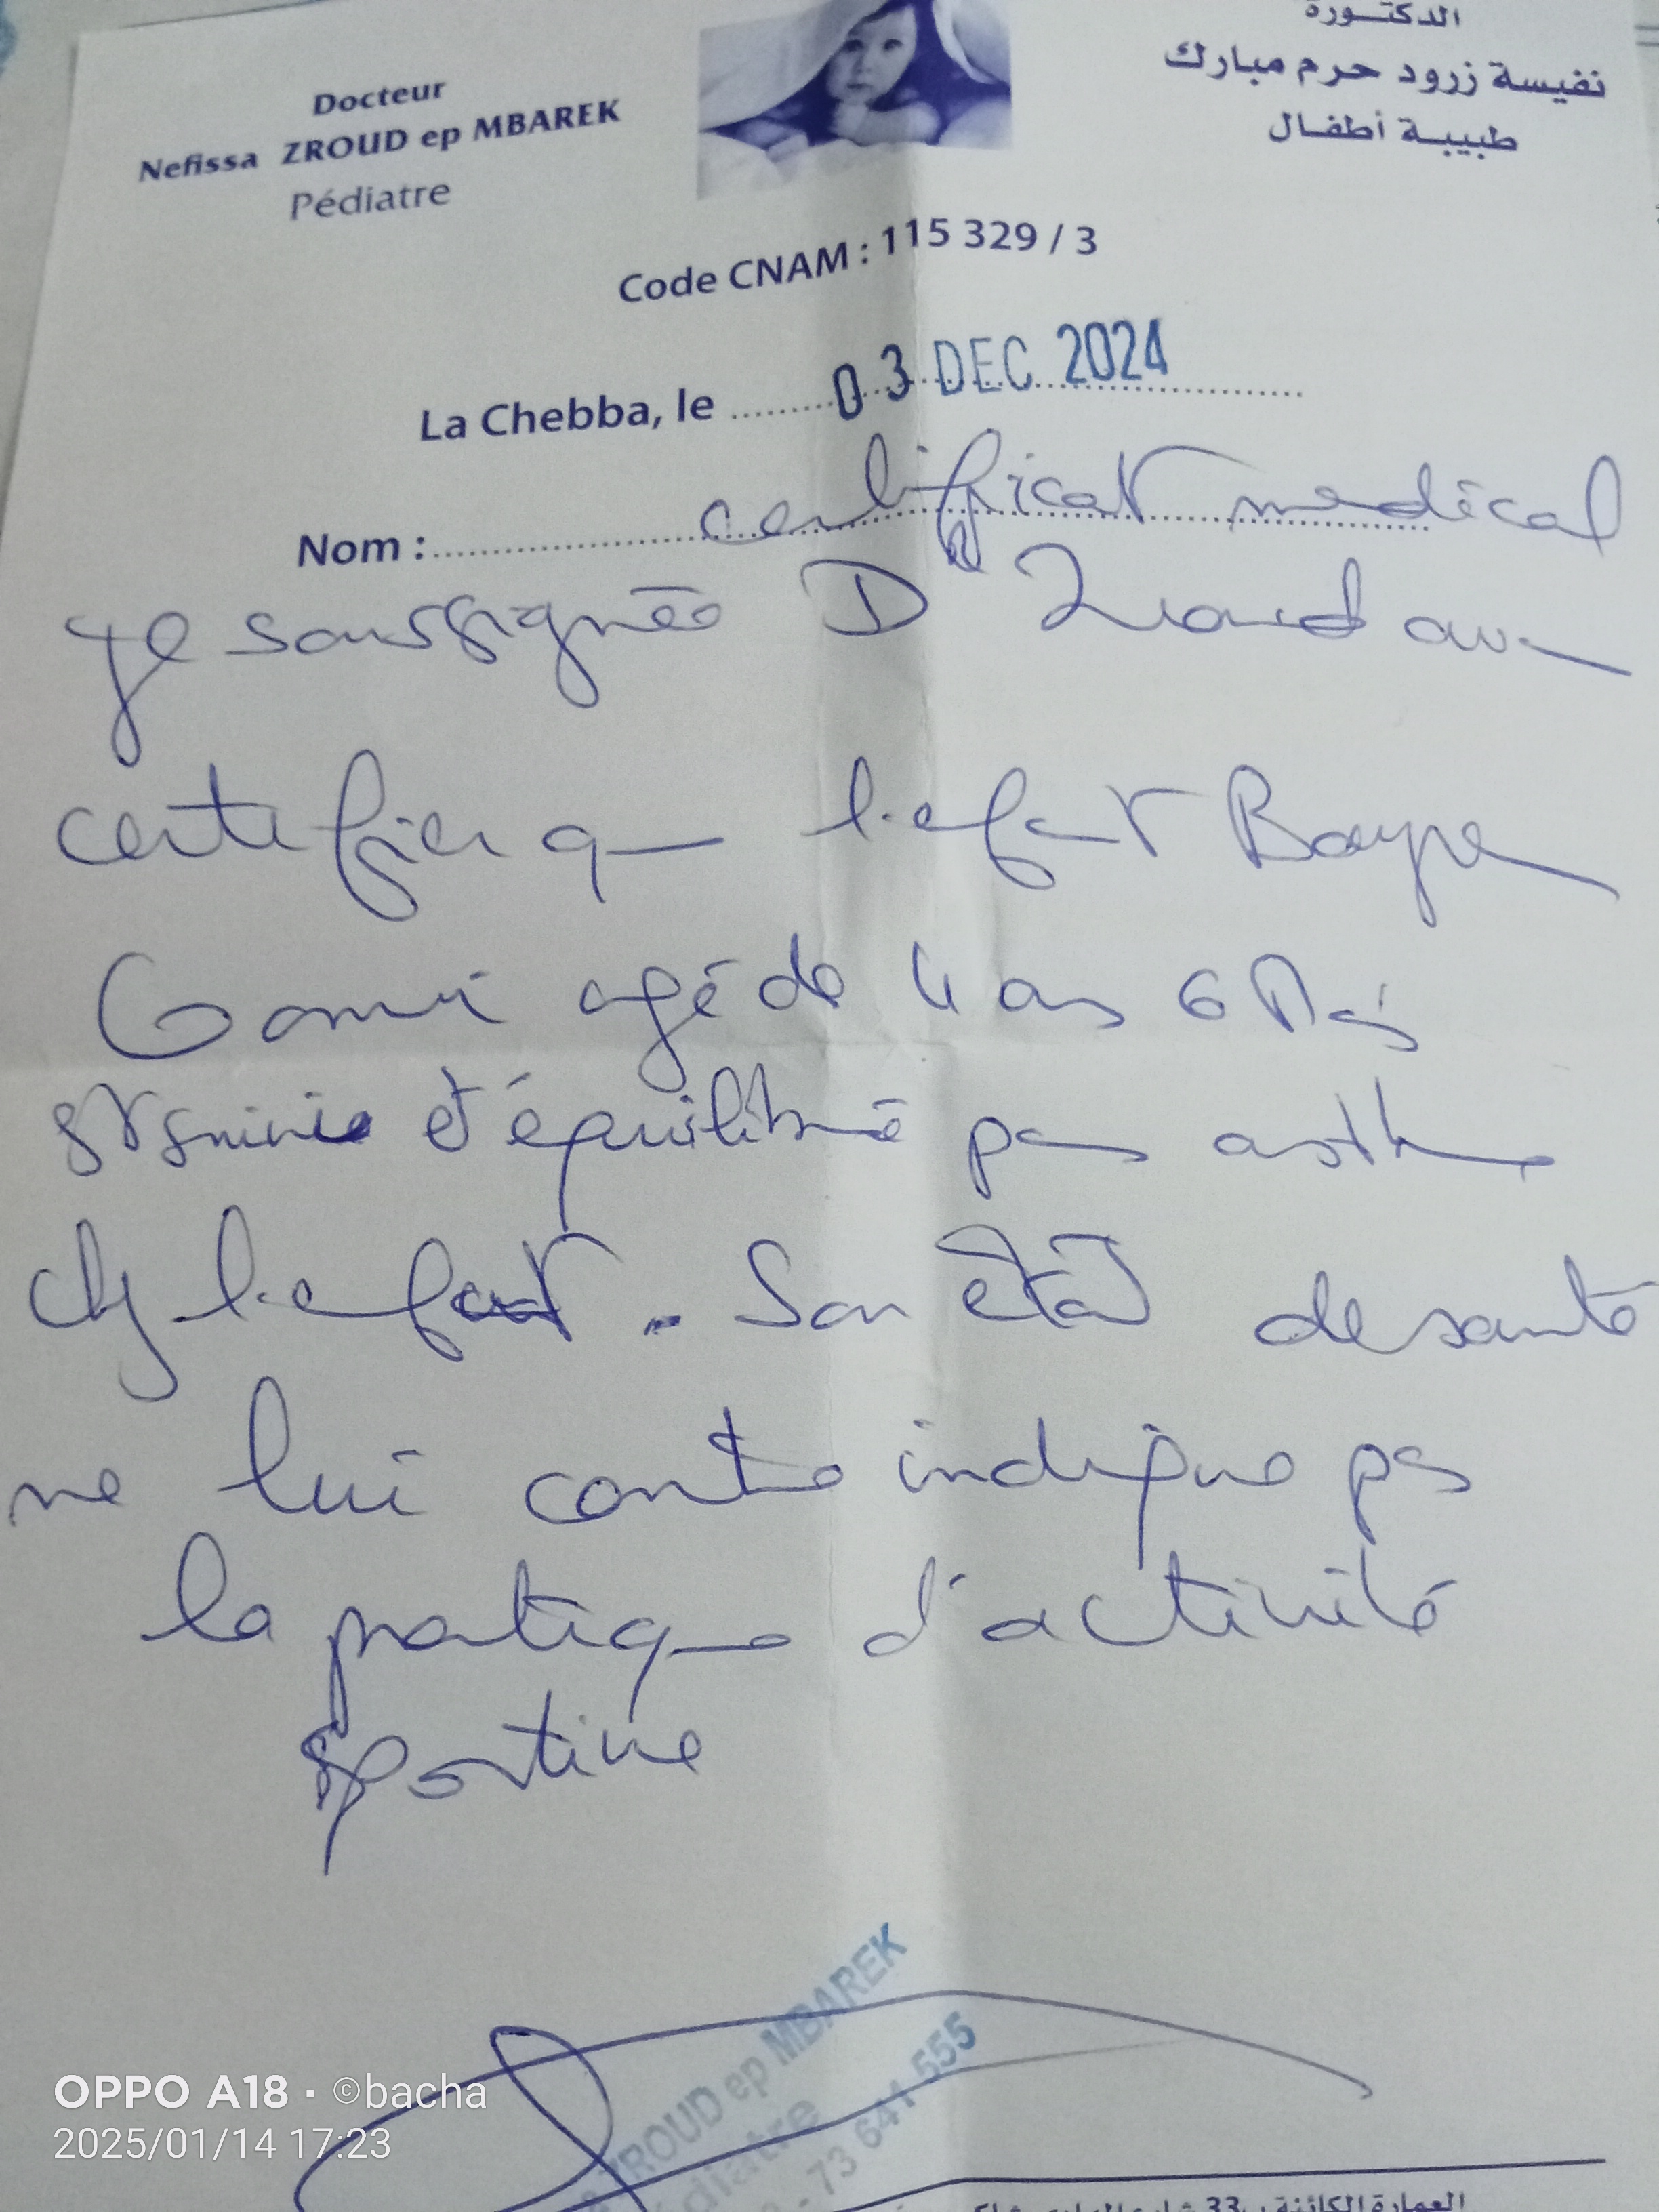 الدكتورة
Docteur
نفيسة زرود حرم مبارك
Nefissa ZROUD ep MBAREK
طبيبة أطفال
Pédiatre
Code CNAM : 115 329 / 3
La Chebba, le 03 DEC 2024
Nom : certificat medical
Je soussignée Dr Zroud
certifier que l'enfant
agé de 4 ans 6 Mois
et équilibré pas asthme
chez l'enfant. Son état de santé
ne lui contre indique pas
la pratique d'activité
sportive
ZROUD ep MBAREK
Pédiatre
73 641 555
OPPO A18 · ©bacha
2025/01/14 17:23